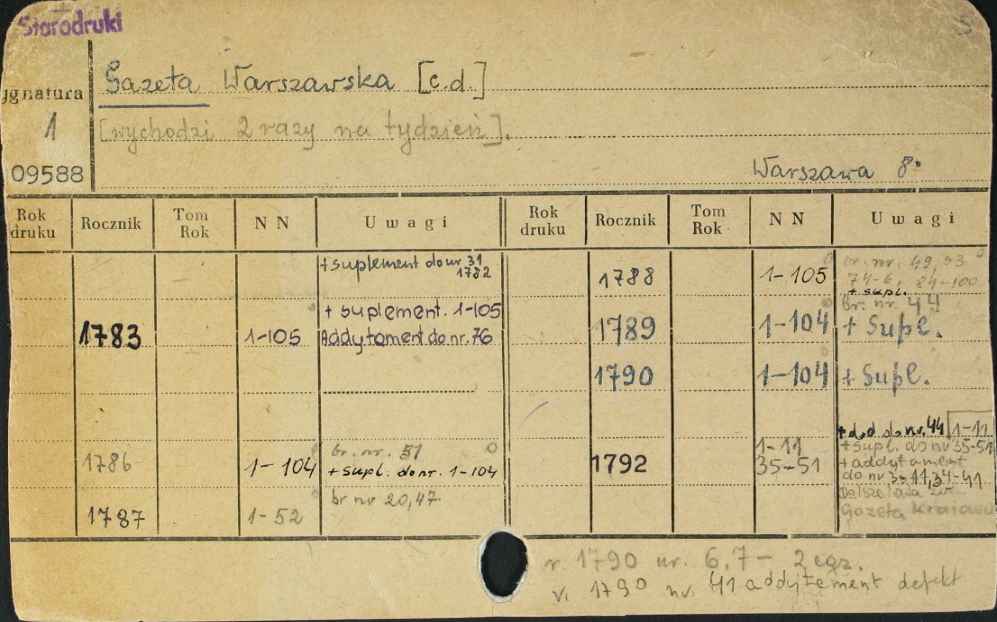 Starodruki
5
Gazeta Warszawska [c.d.]
ygnatura
1
[wychodzi 2 razy na tydzień].
09588
Warszawa 8°
Rok druku Rocznik Tom Rok NN Uwagi Rok druku Rocznik Tom Rok NN Uwagi
+ suplement do nr. 31
1782
1788 1-105 br. nr. 49, 53
74-6, 84-100
+ supl.
1783 1-105 + suplement. 1-105
Addytament do nr. 76
br. nr 44
1789 1-104 + Supl.
1790 1-104 + Supl.
1786 1-104 br. nr. 51
+ supl. do nr. 1-104
1792 1-11
35-51
+ dod do nr. 44 1-11
+ supl. do nr 35-51
+ addytament
do nr 3-11, 34-41
Gazeta Krajowa
1787 1-52 br nr 20,47
r. 1790 nr. 6,7 - 2 egz.
r. 1790 nr. 41 addytement defekt